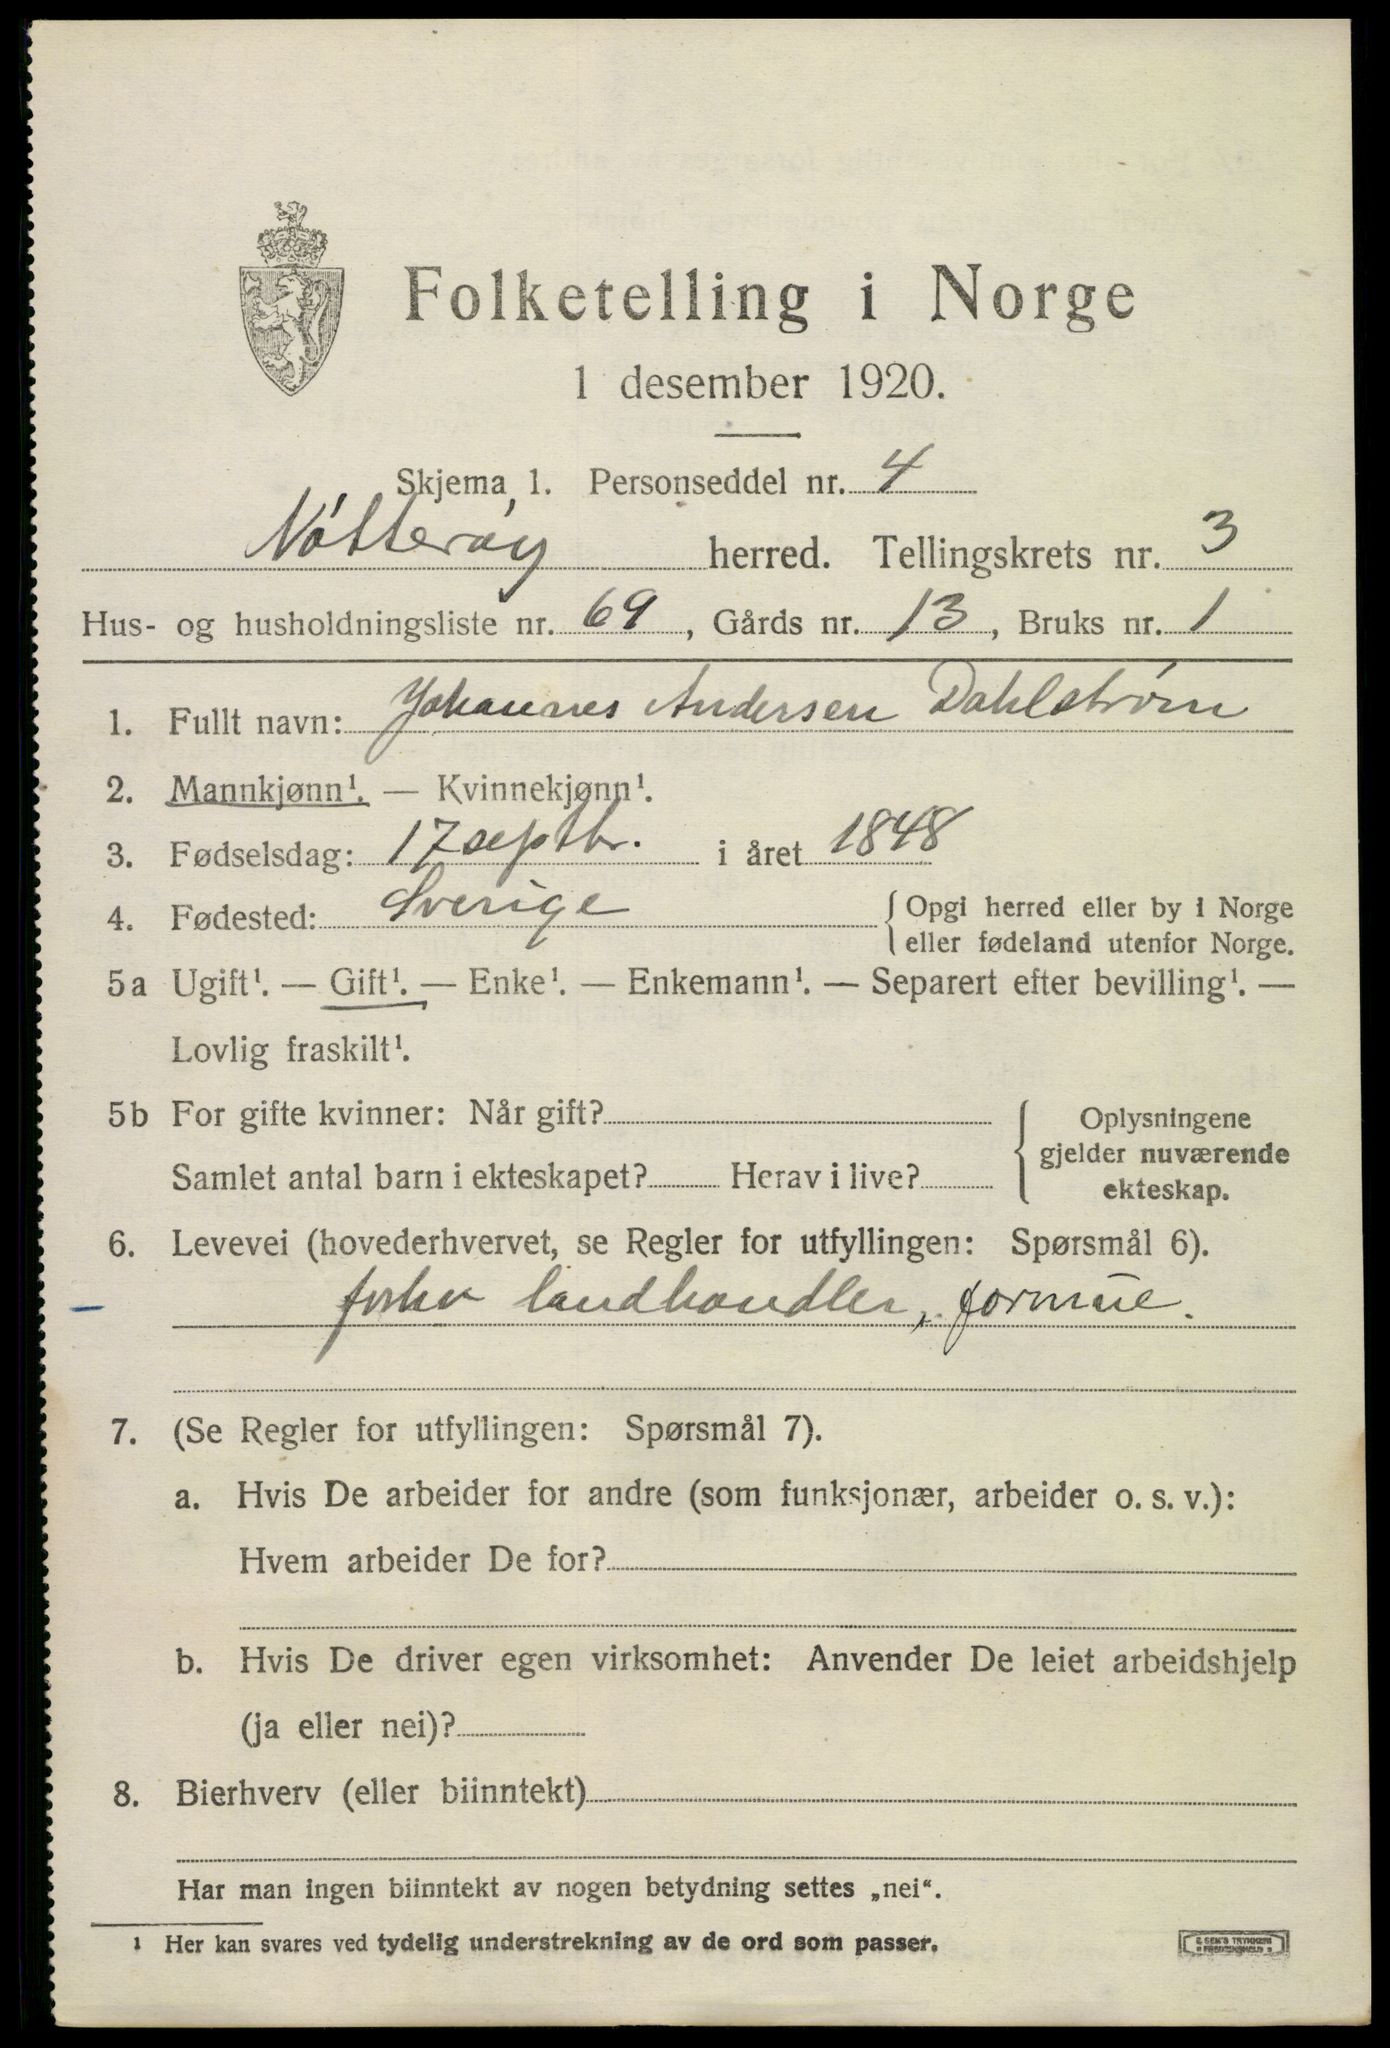 Folketelling i Norge
1 desember 1920.
Skjema 1. Personseddel nr. 4
Nøtterøy herred. Tellingskrets nr. 3
Hus- og husholdningsliste nr. 69, Gårds nr. 13, Bruks nr. 1
1. Fullt navn: Johannes Andersen Dahlstrøm
2. Mannkjønn¹. — Kvinnekjønn¹.
3. Fødselsdag: 17 septbr. i året 1848
4. Fødested: Sverige { Opgi herred eller by i Norge
eller fødeland utenfor Norge.
5a Ugift¹. — Gift¹. — Enke¹. — Enkemann¹. — Separert efter bevilling¹. —
Lovlig fraskilt¹.
5b For gifte kvinner: Når gift? { Oplysningene
gjelder nuværende
Samlet antal barn i ekteskapet? Herav i live?
ekteskap.
6. Levevei (hovederhvervet, se Regler for utfyllingen: Spørsmål 6).
landhandler, formue.
7. (Se Regler for utfyllingen: Spørsmål 7).
a. Hvis De arbeider for andre (som funksjonær, arbeider o. s. v.):
Hvem arbeider De for?
b. Hvis De driver egen virksomhet: Anvender De leiet arbeidshjelp
(ja eller nei)?
8. Bierhverv (eller biinntekt)
Har man ingen biinntekt av nogen betydning settes „nei“.
¹ Her kan svares ved tydelig understrekning av de ord som passer.